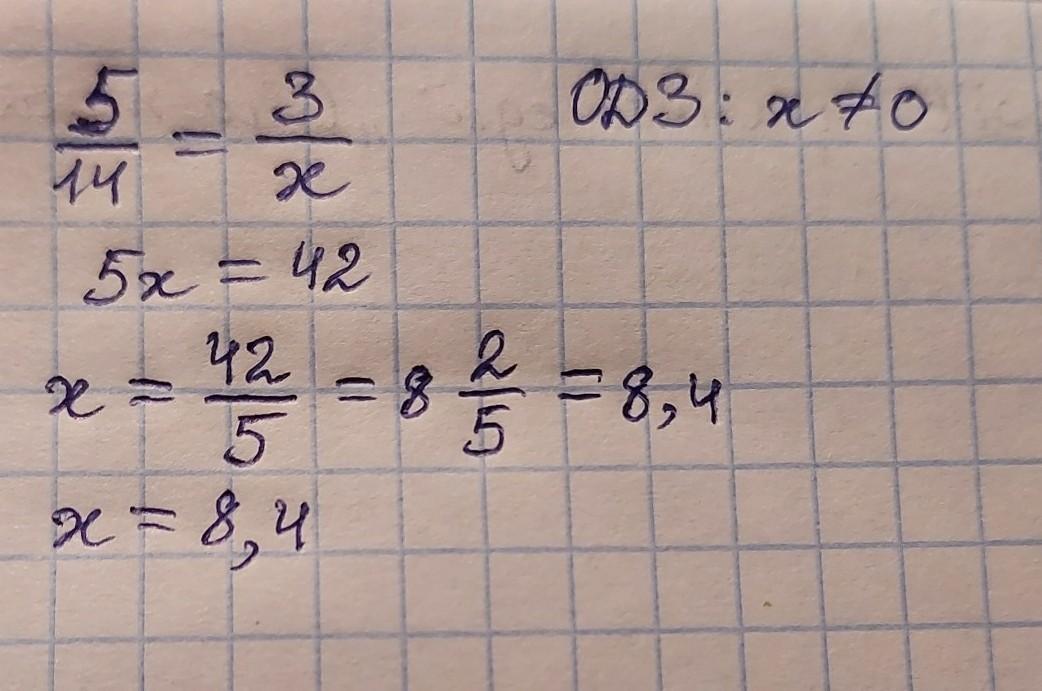 5/14 = 3/x ОДЗ: x ≠ 0
5x = 42
x = 42/5 = 8 2/5 = 8,4
x = 8,4